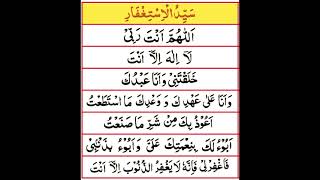 سَيِّدُ الْاِسْتِغْفَارْ
اَللّٰهُمَّ اَنْتَ رَبِّيْ
لَآ اِلٰهَ اِلَّآ اَنْتَ
خَلَقْتَنِيْ وَاَنَا عَبْدُكَ
وَاَنَا عَلٰى عَهْدِكَ وَ وَعْدِكَ مَا اسْتَطَعْتُ
اَعُوْذُ بِكَ مِنْ شَرِّ مَا صَنَعْتُ
اَبُوْءُ لَكَ بِنِعْمَتِكَ عَلَيَّ وَ اَبُوْءُ بِذَنْۢبِيْ
فَاغْفِرْلِيْ فَاِنَّهٗ لَا يَغْفِرُ الذُّنُوْبَ اِلَّآ اَنْتَ